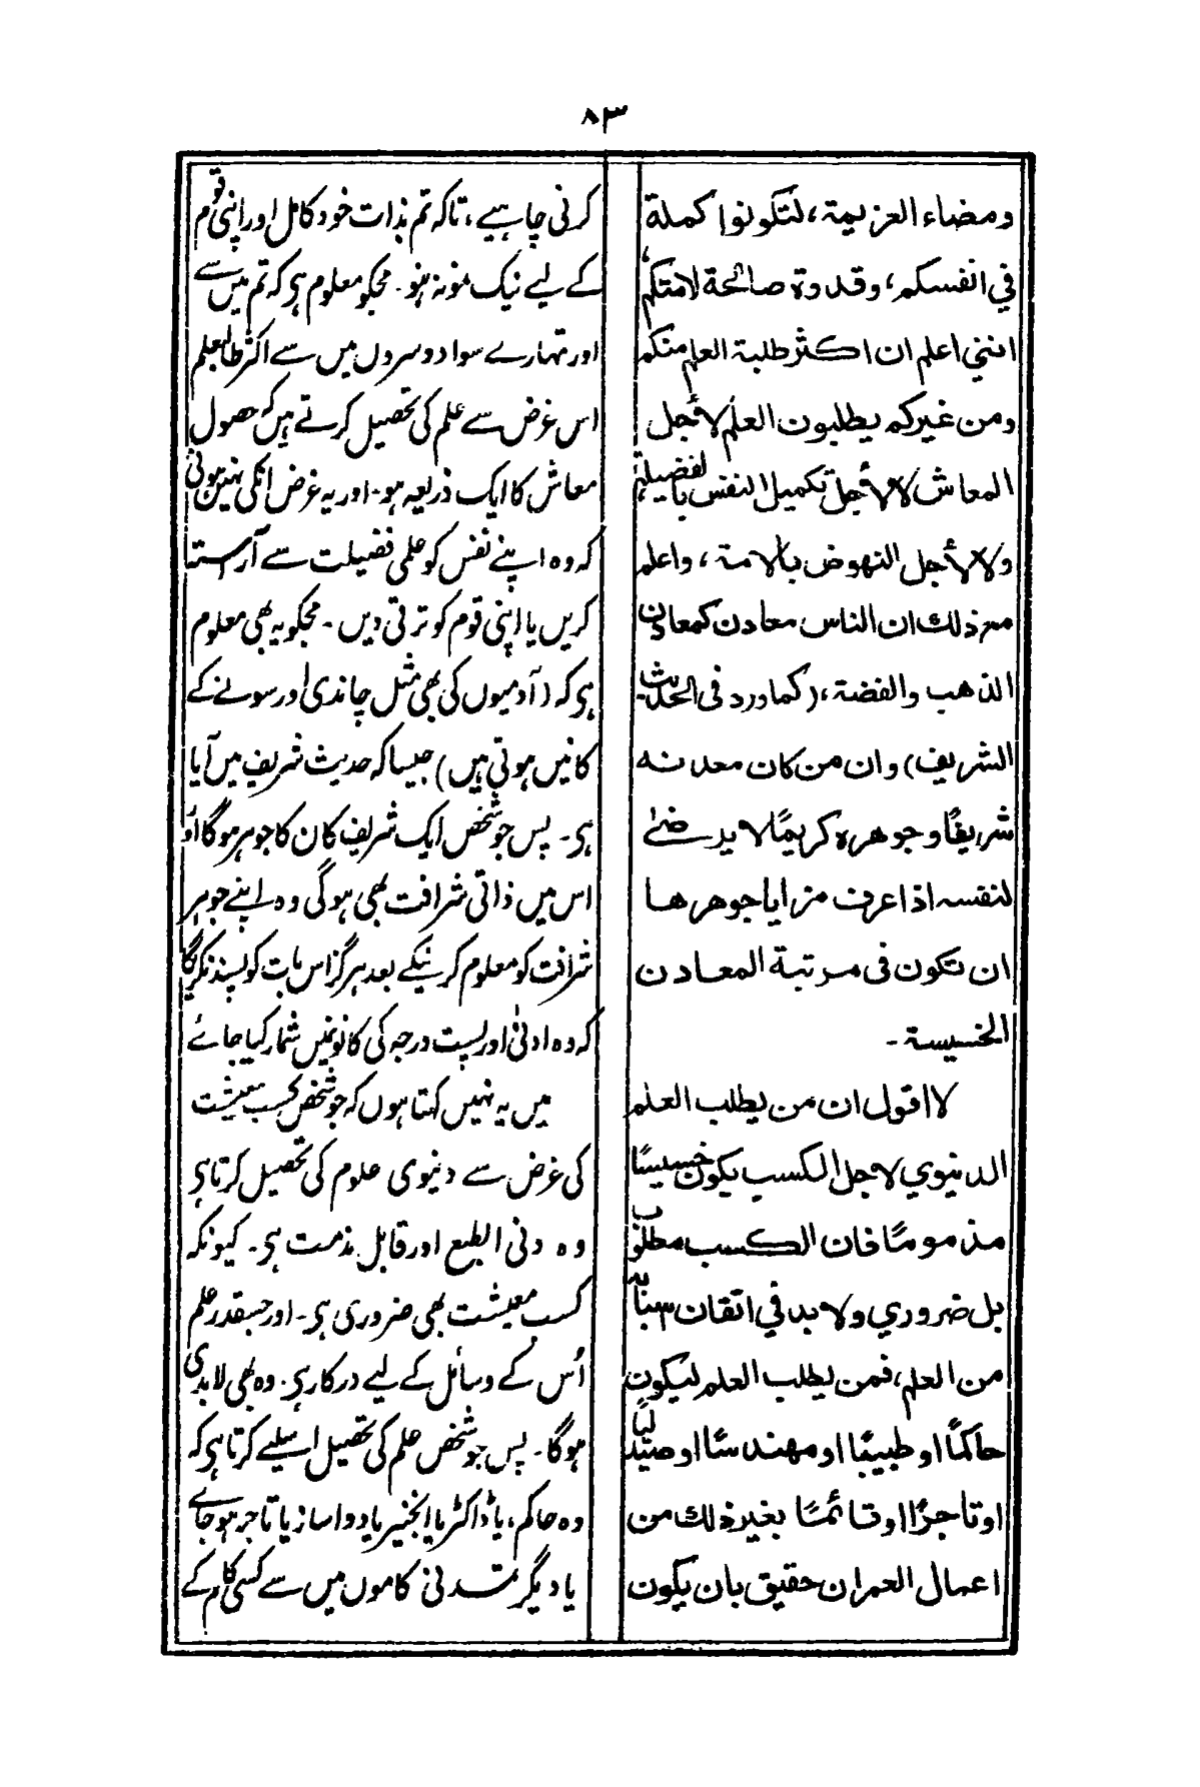 ۸۳
ومضاء العزيمة، لتكونوا كملة
في انفسكم، وقدوة صالحة لامتكم،
انني اعلم ان اكثر طلبة العلم منكم
ومن غيركم يطلبون العلم لأجل
المعاش لا لأجل تكميل النفس بالفضيلة
ولا لأجل النهوض بالامة، واعلم
مع ذلك ان الناس معادن كمعادن
الذهب والفضة، (كما ورد فی الحديث
الشريف) وان من كان معدنه
شريفًا وجوهره كريمًا لا يرضى
لنفسه اذا عرف مزايا جوهرها
ان تكون فى مرتبة المعادن
الخسيسة -
لا اقول ان من يطلب العلم
الدنيوي لاجل الكسب يكون خسيسًا
مذمومًا فان الكسب مطلوب
بل ضروري ولا بد في اتقان
من العلم، فمن يطلب العلم ليكون
حاكمًا او طبيبًا او مهندسًا او صيدليًا
او تاجرًا او قائمًا بغير ذلك من
اعمال العمران حقيق بان يكون
کرنی چاہیے، تاکہ تم بذات خود کامل اور اپنی قوم
کے لیے نیک نمونہ بنو۔ مجکو معلوم ہی کہ تم میں سے
اور تمہارے سوا دوسروں میں سے اکثر طالبعلم
اس غرض سے علم کی تحصیل کرتے ہیں کہ حصول
معاش کا ایک ذریعہ ہو۔ اور یہ غرض انکی نہیں ہوتی
کہ وہ اپنے نفس کو علمی فضیلت سے آراستہ
کریں یا اپنی قوم کو ترقی دیں۔ مجکو یہ بھی معلوم
ہی کہ (آدمیوں کی بھی مثل چاندی اور سونے کے
کانیں ہوتی ہیں) جیسا کہ حدیث شریف میں آیا
ہی۔ پس جو شخص ایک شریف کان کا جوہر ہوگا اور
اس میں ذاتی شرافت بھی ہوگی وہ اپنے جوہر
شرافت کو معلوم کرنیکے بعد ہرگز اس بات کو پسند نکریگا
کہ وہ ادنیٰ اور پست درجہ کی کانونمیں شمار کیا جائے
میں یہ نہیں کہتا ہوں کہ جو شخص کسب معیشت
کی غرض سے دنیوی علوم کی تحصیل کرتا ہی
وہ دنی الطبع اور قابل مذمت ہی۔ کیونکہ
کسب معیشت بھی ضروری ہی۔ اور جسقدر علم
اُس کے وسائل کے لیے درکار ہی۔ وہ بھی لابدی
ہوگا۔ پس جو شخص علم کی تحصیل اسلیے کرتا ہی کہ
وہ حاکم، یا ڈاکٹر یا انجنیر یا دوا ساز یا تاجر ہو جائے
یا دیگر تمدنی کاموں میں سے کسی کام کے